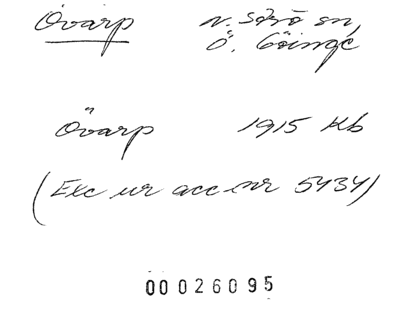 Övarp N. Sörö sn,
Ö. Göinge
Övarp 1915 Kb
(Exc ur acc nr 5434)
00026095